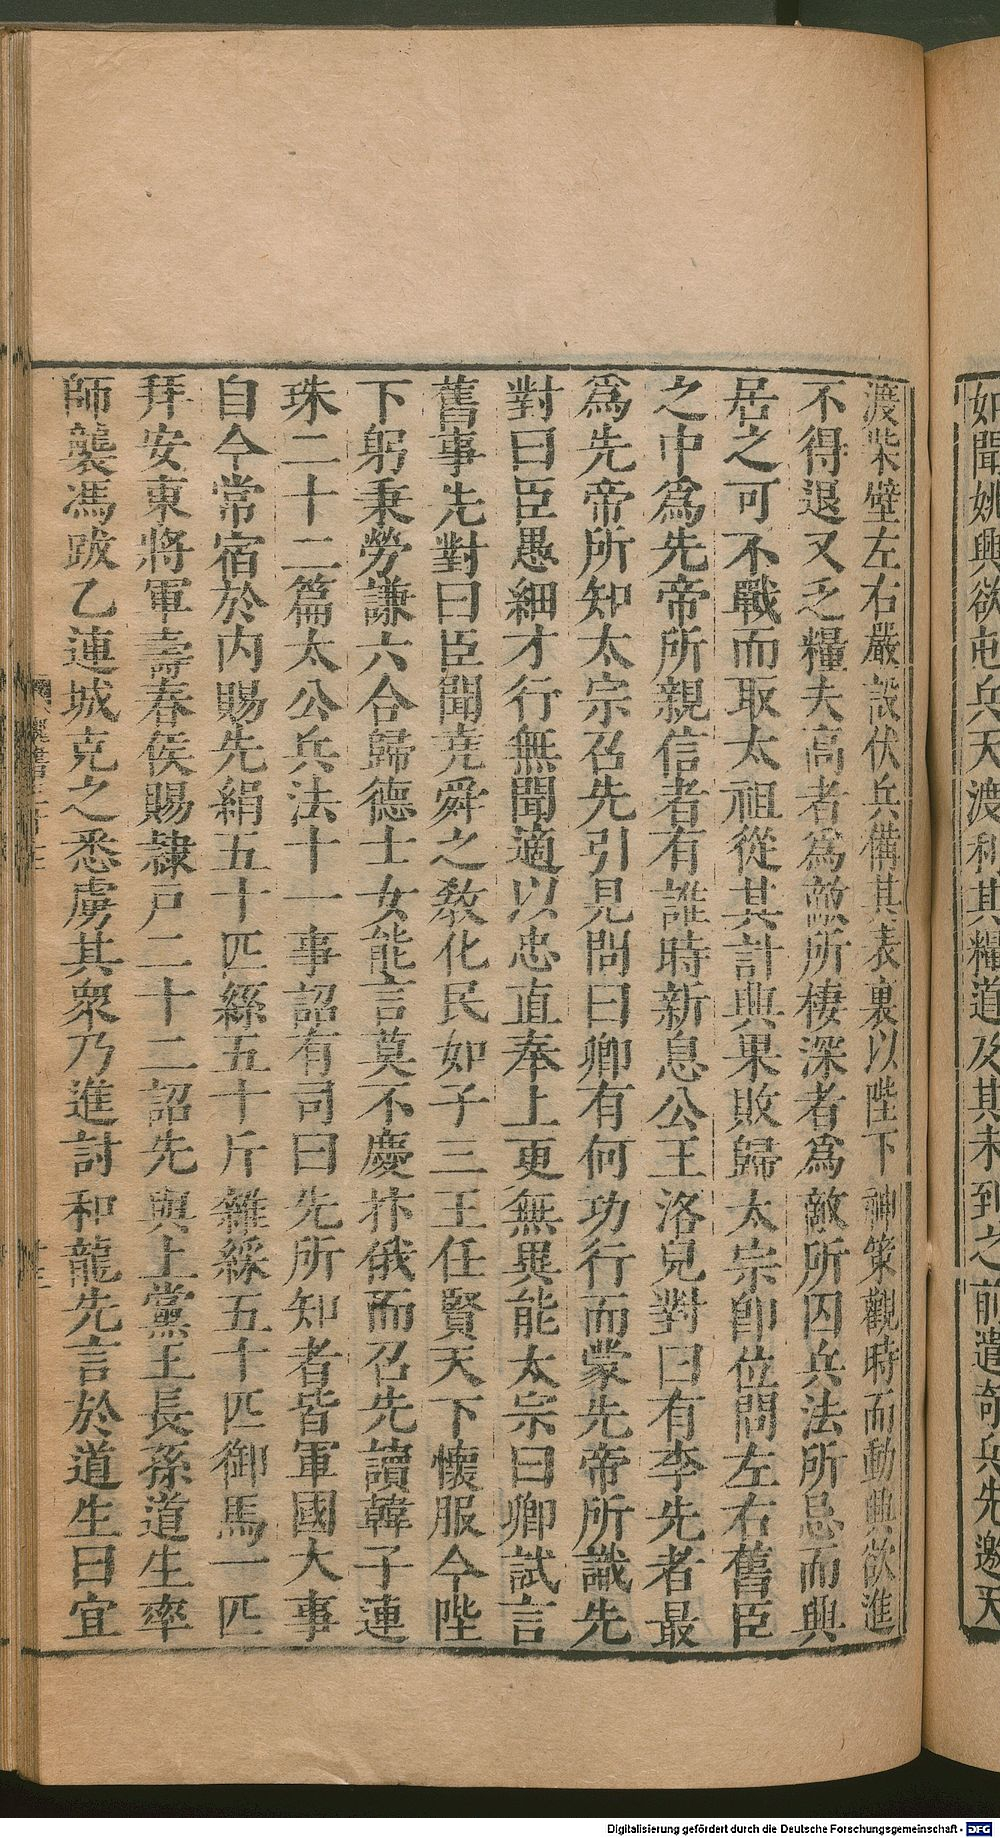 如聞姚興欲屯兵天渡利其糧道及其未到之前遣奇兵先邀天
渡柴壁左右嚴設伏兵備其表裏以陛下神策觀時而動興欲進
不得退又乏糧夫高者爲敵所棲深者爲敵所囚兵法所忌而興
居之可不戰而取太祖從其計興果敗歸太宗卽位問左右舊臣
之中爲先帝所親信者有誰時新息公王洛兒對曰有李先者最
爲先帝所知太宗召先引見問曰卿有何功行而蒙先帝所識先
對曰臣愚細才行無聞適以忠直奉上更無異能太宗曰卿試言
舊事先對曰臣聞堯舜之敎化民如子三王任賢天下懷服今陛
下躬秉勞謙六合歸德士女能言莫不慶抃俄而召先讀韓子連
珠二十二篇太公兵法十一事詔有司曰先所知者皆軍國大事
自今常宿於內賜先絹五十匹絲五十斤雜綵五十匹御馬一匹
拜安東將軍壽春侯賜隸戶二十二詔先與上黨王長孫道生率
師襲馮跋乙連城克之悉虜其衆乃進討和龍先言於道生曰宜
Digitalisierung gefördert durch die Deutsche Forschungsgemeinschaft - DFG